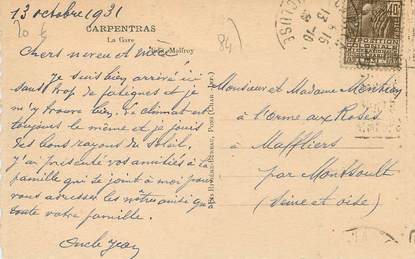 13 octobre 1931
CARPENTRAS
La Gare
70
84
Chers neveu et nièce
Je suis bien arrivé ici
sans trop de fatigues et je
m'y trouve bien. Le climat est
toujours le même et je jouis
des bons rayons du soleil.
J'ai présenté vos amitiés à la
famille qui se joint à moi pour
vous adresser les nôtres ainsi qu'
toute votre famille.
Oncle Jean
Monsieur et Madame
à l'Orme aux Roses
à Maffliers
par Montsoult
(Seine et Oise)
40c